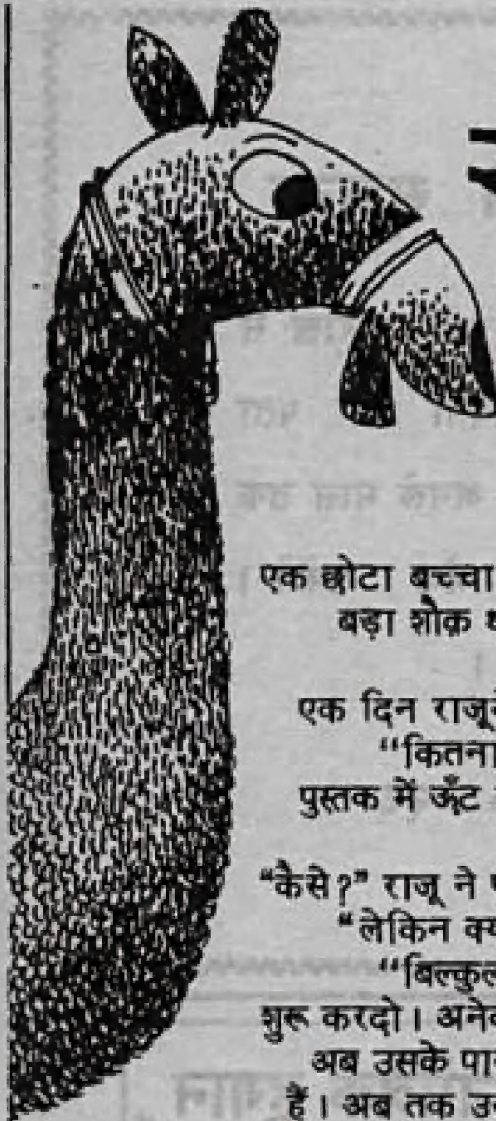 एक छोटा बच्चा
बड़ा शौक़
एक दिन राजू
“कितना
पुस्तक में ऊँट
“कैसे?” राजू ने
“लेकिन
“बिल्कुल
शुरू करदो। अनेक
अब उसके पास
हैं। अब तक